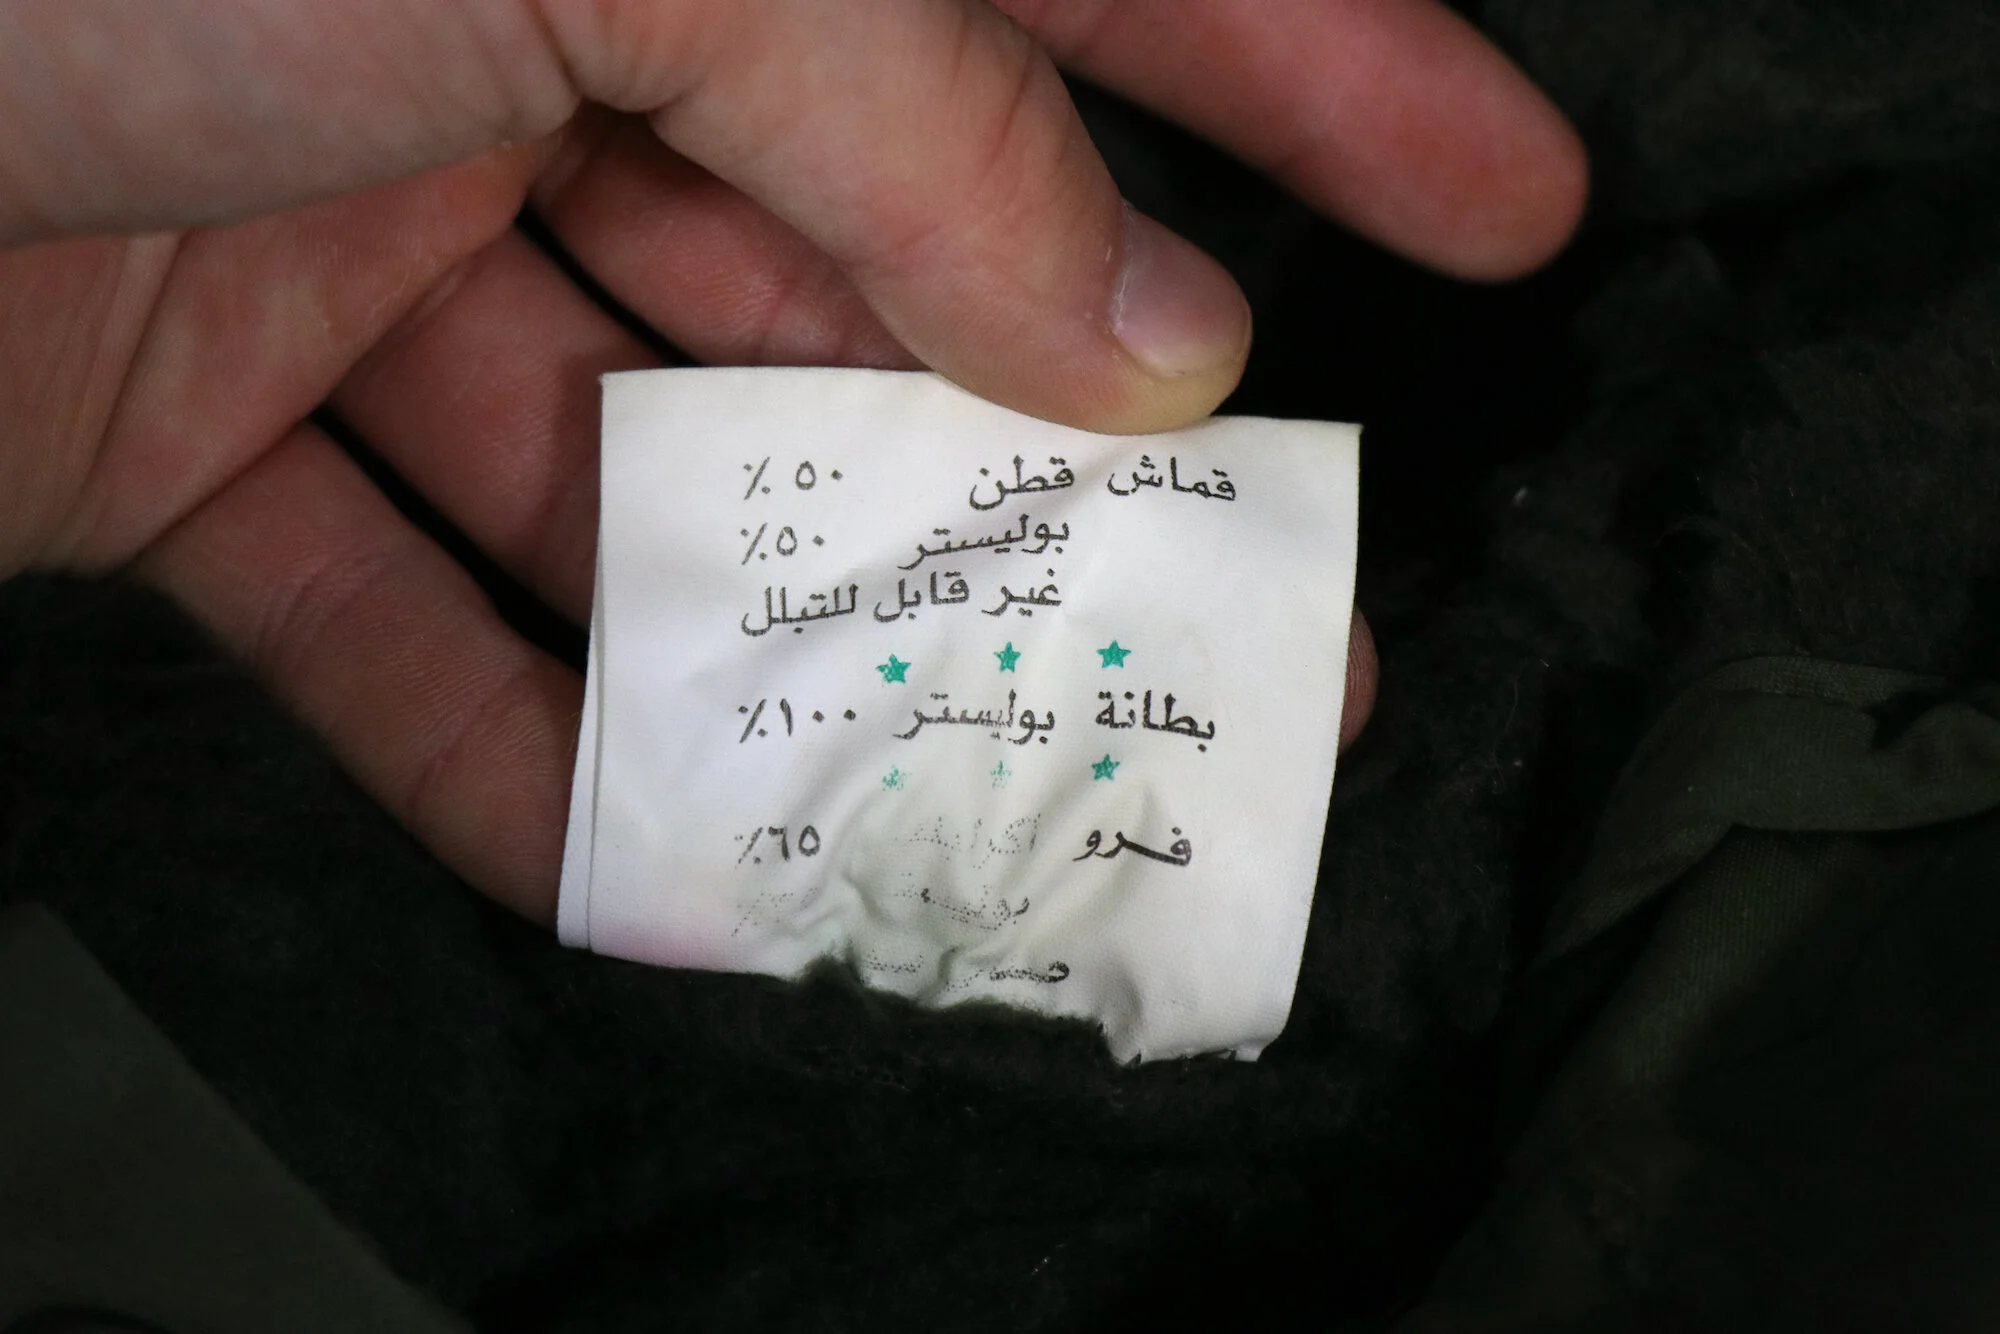 قماش قطن ٥٠ ٪
بوليستر ٥٠٪
غير قابل للتبلل
بطانة بوليستر ١٠٠٪
فرو اكرليك ٦٥٪